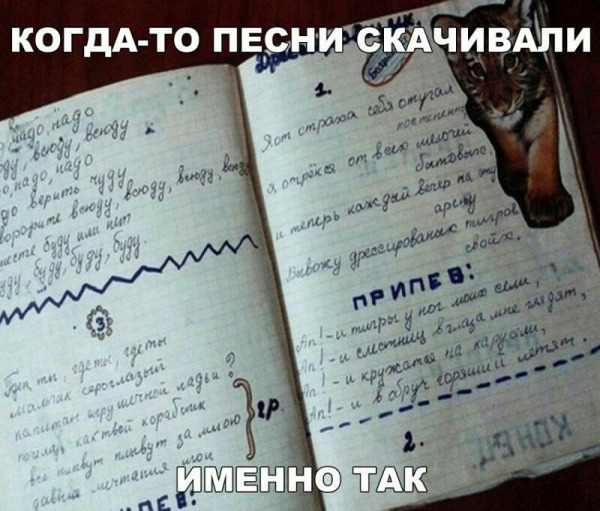 КОГДА-ТО ПЕСНИ СКАЧИВАЛИ
надо, надо
всюду, всюду
надо, надо
верить чуду
всюду, всюду, всюду, всюду
буду или нет
буду, буду, буду.
3
где ты, где ты
мальчик сероглазый
капитан игрушечной ладьи?
почему как твой кораблик
все плывут плывут за мною
давние мечтания мои
2р
ПЕВ:
1.
Я от страха себя отучал
постепенно,
Я отрёкся от всех мелочей
бытовых
и теперь каждый вечер на эту
арену
Вывожу дрессированных тигров
своих.
ПРИПЕВ:
Ап! - и тигры у ног моих сели,
Ап! - и с лестниц в глаза мне глядят,
Ап! - и кружатся на карусели,
Ап! - и в обруч горящий летят.
2.
КОНЕЦ
ИМЕННО ТАК